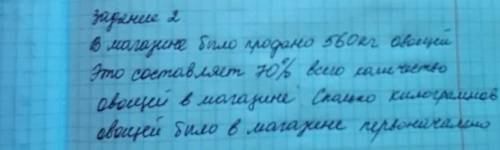 Задание 2
В магазине было продано 560 кг овощей
Это составляет 70% всего количество
овощей в магазине Сколько килограммов
овощей было в магазине первоначально